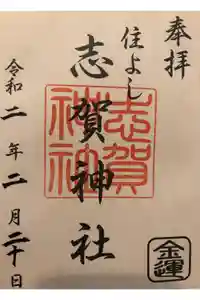 奉拝
住よし
志賀神社
志賀神社
令和二年二月二十日
金運